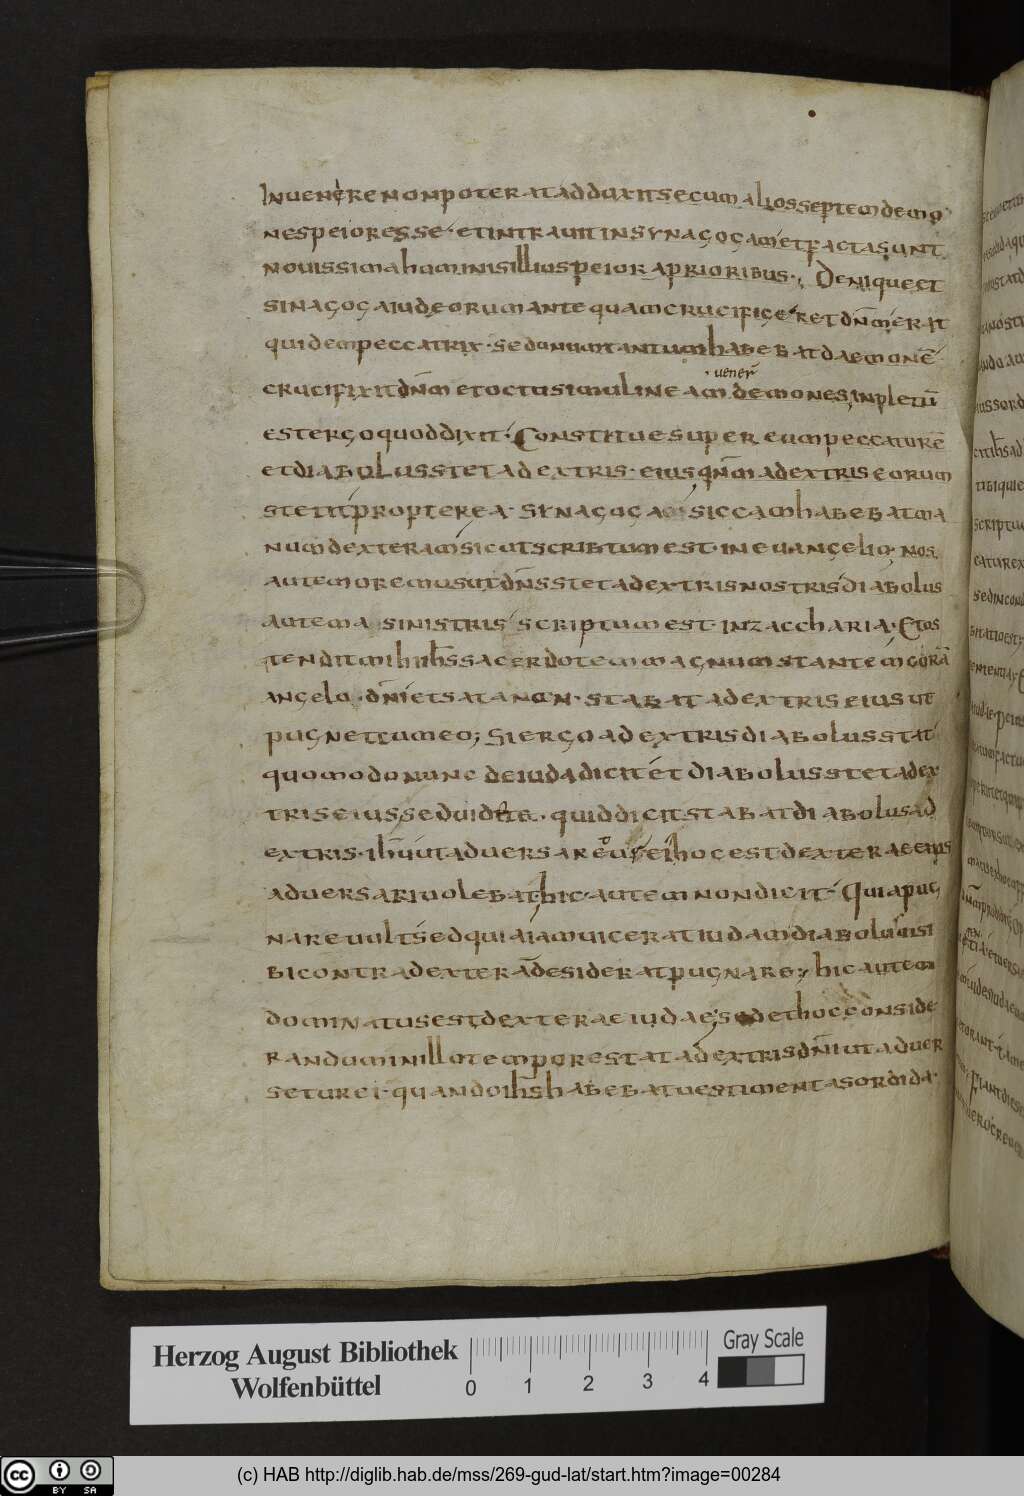 Inuenire non poterat adduxit secum alios septem demo
nes peiores se· et intrauit in synagogam et facta sunt
nouissima hominis illius peiora prioribus·, Denique et
sinagoga iudeorum antequam crucifigeret dn̄m erat
quidem peccatrix· sed unum tantum habebat daemonē·
crucifixit dn̄m et octo simul in eam demones inpletū
·uener̄
est ergo quod dixit· Constitue super eum peccatorē
et diabulus stet ad extris· eius qn̄m ad extris eorum
stetit propterea· Synagoga siccam habebat ma
num dexteram sicut scribtum est· in euangelio· nos
autem oremus ut dn̄s stet ad extris nostris diabolus
autem a sinistris scriptum est· in zaccharia· Et os
tendit mihi ih̄s sacerdotem magnum stantem corā
angelo· dn̄i et satanan· stabat ad extris eius ut
pugnet cum eo; Si ergo ad extris diabolus stat
quomodo nunc de iuda dicit et diabolus stet ad ex
tris eius sed uidete· quid dicit stabat diabolus ad
extris· ih̄u ut aduersaretur ei hoc est dexterae eius
aduersari uolebat hic· autem non dicit· Quia pug
nare uult sed quia iam uicerat iudam diabolus nisi
bi contra dexterā desiderat pugnare; hic autem
dominatus est dexterae iudae; sed et hoc conside
randum in illo tempore stat ad extris dn̄i ut aduer
setur ei· quando ih̄s habebat uestimenta sordida·
Herzog August Bibliothek
Wolfenbüttel
0 1 2 3 4
Gray Scale
cc BY SA
(c) HAB http://diglib.hab.de/mss/269-gud-lat/start.htm?image=00284